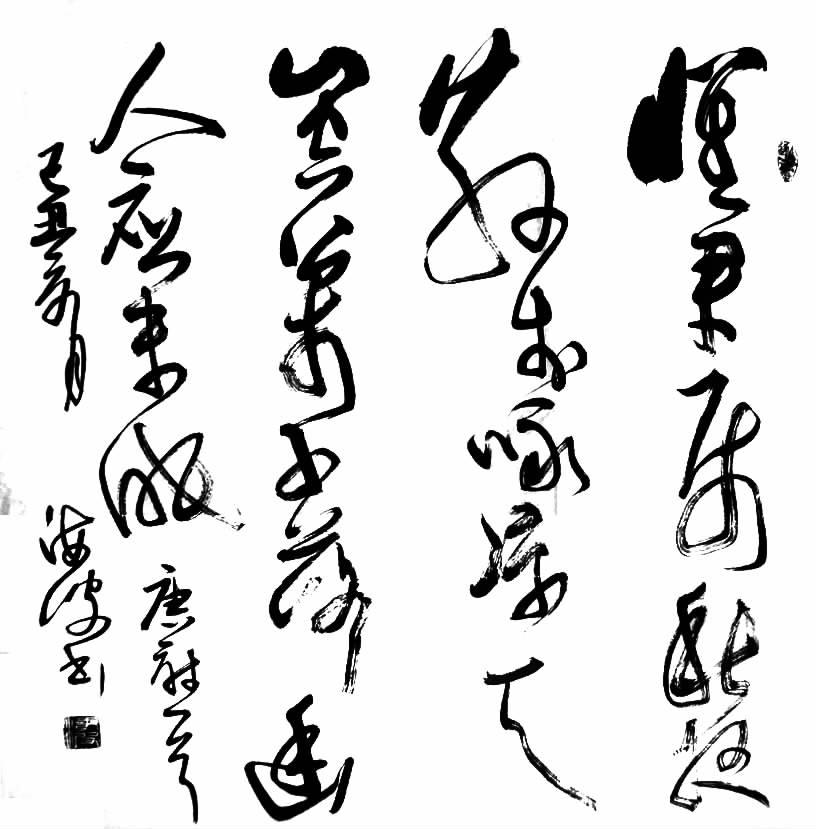 懷君屬秋夜
散步詠凉天
山空松子落幽
人應未眠 唐詩一首
己丑夏月 海波书